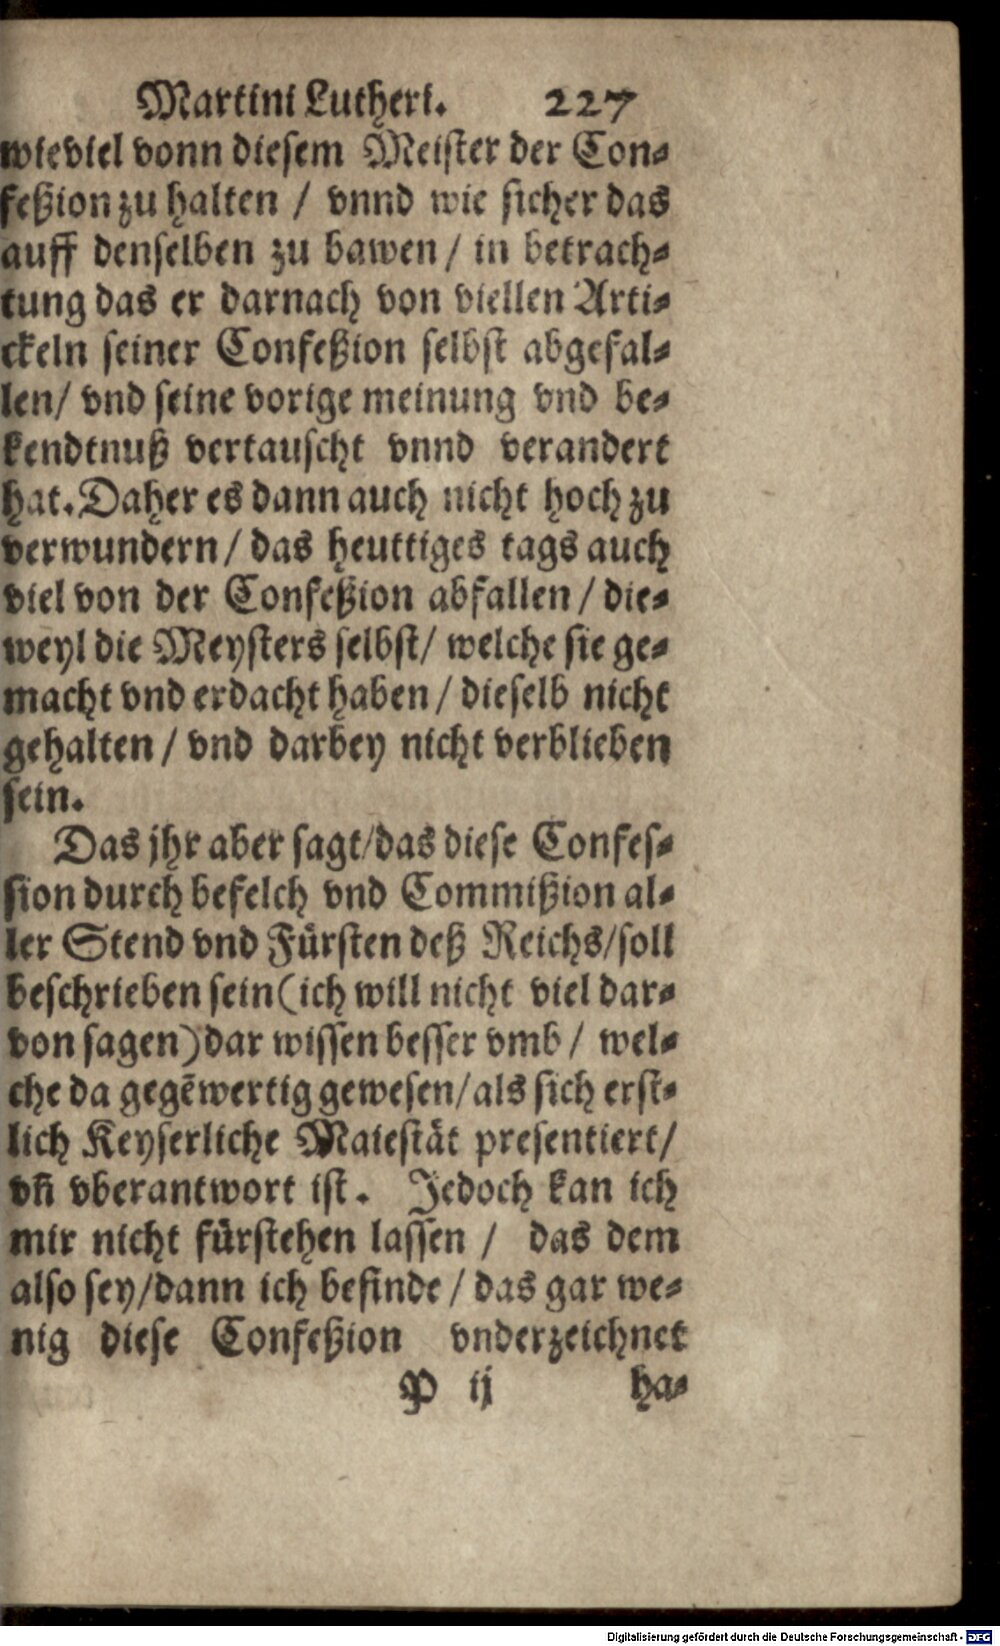 Martini Lutheri. 227
wieviel vonn diesem Meister der Con-
feßion zu halten / vnnd wie sicher das
auff denselben zu bawen / in betrach-
tung das er darnach von viellen Arti-
ckeln seiner Confeßion selbst abgefal-
len / vnd seine vorige meinung vnd be-
kendtnuß vertauscht vnnd verandert
hat. Daher es dann auch nicht hoch zu
verwundern / das heuttiges tags auch
viel von der Confeßion abfallen / die-
weyl die Meysters selbst / welche sie ge-
macht vnd erdacht haben / dieselb nicht
gehalten / vnd darbey nicht verblieben
sein.
Das jhr aber sagt / das diese Confes-
sion durch befelch vnd Commißion al-
ler Stend vnd Fürsten deß Reichs / soll
beschrieben sein (ich will nicht viel dar-
von sagen) dar wissen besser vmb / wel-
che da gegēwertig gewesen / als sich erst-
lich Keyserliche Maiestät presentiert /
vñ vberantwort ist. Jedoch kan ich
mir nicht fürstehen lassen / das dem
also sey / dann ich befinde / das gar we-
nig diese Confeßion vnderzeichnet
P ij ha-
Digitalisierung gefördert durch die Deutsche Forschungsgemeinschaft - DFG